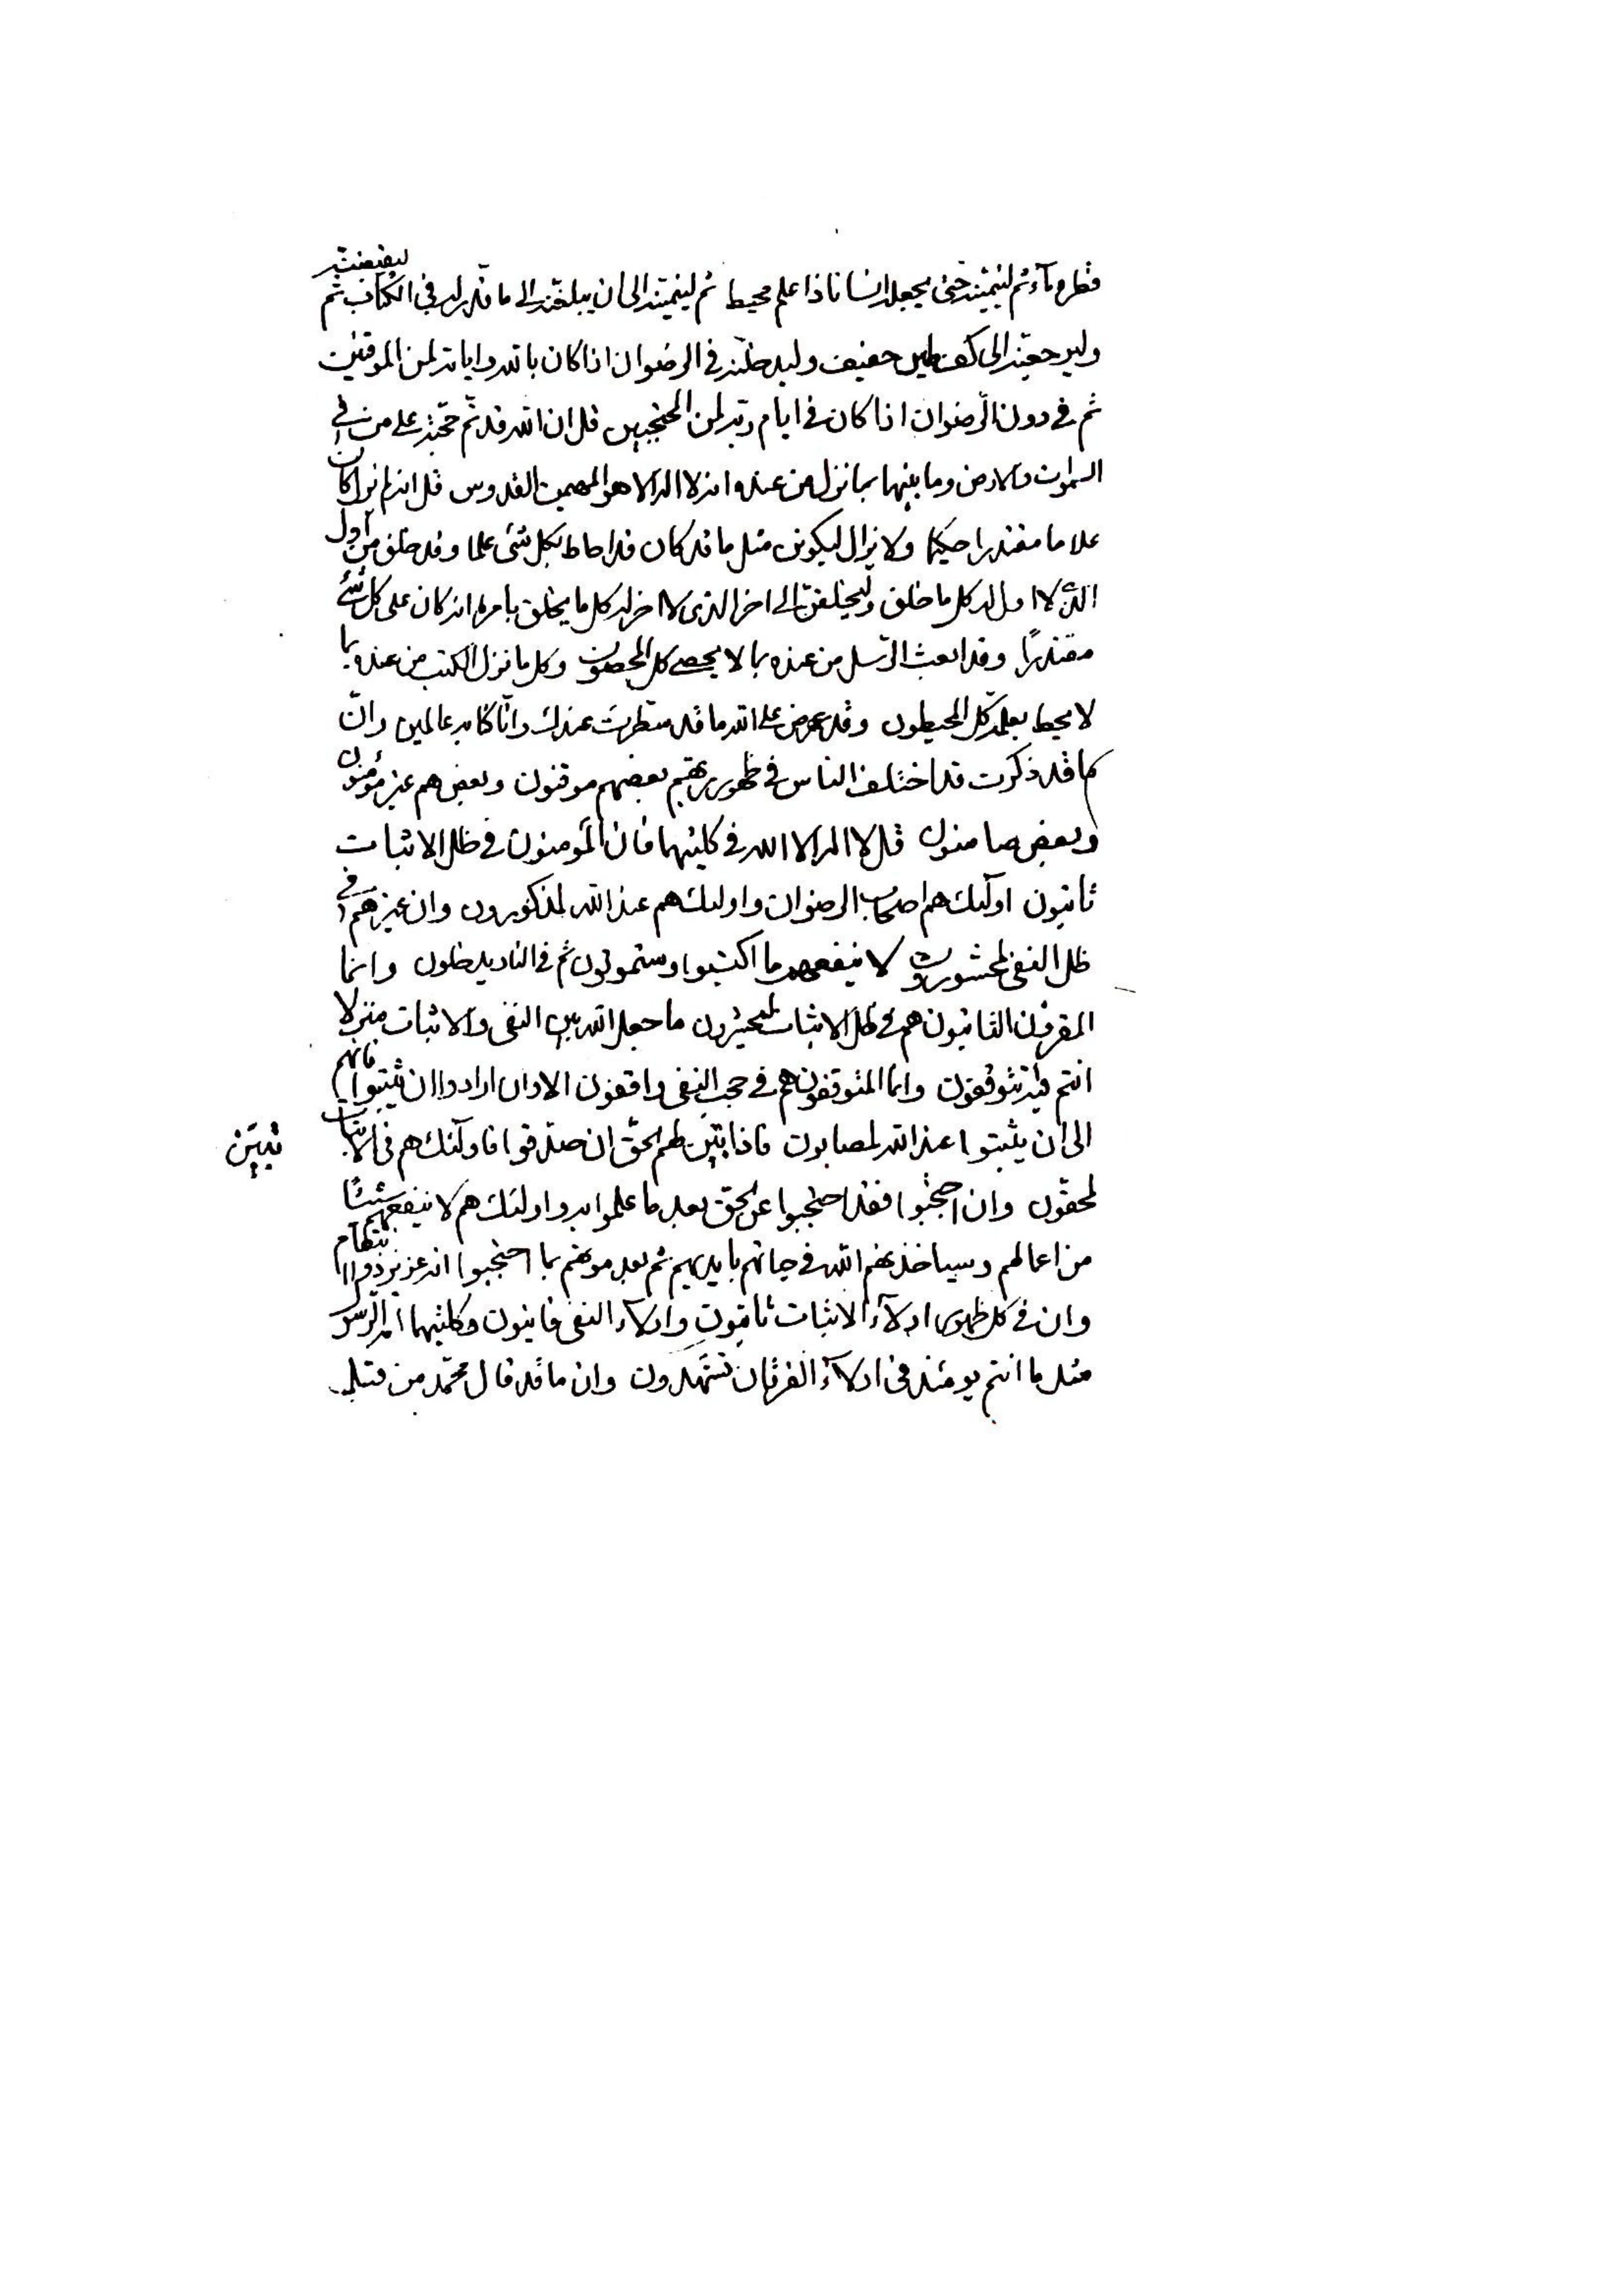 قطرة ماء ثم لينميته حتى يجعله انسانا ذا علم محيط ثم لينميته الى ان يبلغنه الى ما قدر له فى الكتاب ثم ليقبضنه
وليرجعنه الى كف طين خفيف وليدخلنه فى الرضوان اذا كان بالله واياته لمن الموقنين
ثم فى دون الرضوان اذا كان فى ايام ربه لمن المحتجبين قل ان الله قد تم حجته على من فى
السموات والارض وما بينهما بما نزل من عنده انه لا اله الا هو المهيمن القدوس قل انه لم يزل كان
علاما مقتدرا حكيما ولا يزال ليكونن مثل ما قد كان قد احاط بكل شئ علما وقد خلق من اول
الذى لا اول له كل ما خلق وليخلقن الى اخر الذى لا اخر له كل ما يخلق بامره انه كان على كل شئ
مقتدرًا وقد ابعث الرسل من عنده بما لا يحصى كل المحصون وكل ما نزل الكتب من عنده بما
لا يحيط بعلمه كل المحيطون وقد عرض على الله ما قد سطرت عندك وانّا كنّا به عالمين وانّ
كما قد ذكرت قد اختلف الناس فى ظهور ربهم بعضهم موقنون وبعض هم غير مؤمنون
وبعض صامتون قل لا اله الا الله فى كلتيهما فان المؤمنون فى ظل الاثبات
ثابتون اولئك هم اصحاب الرضوان واولئك هم عند الله لمذكورون وان غيرهم فى
ظل النفى لمحشورون لا ينفعهم ما اكتسبوا وستموتون ثم فى النار يدخلون وانما
المقرفون الثابتون هم فى ظل الاثبات ليحشرون ما جعل الله بين النفى والاثبات منزلا
انتم فيه تتوقفون وانما المتوقفون هم فى حجب النفى واقفون الا وان ارادوا ان يثبتوا فانهم
الى ان يثبتوا عند الله لمصابون فاذا تبيّن لهم الحق ان صدقوا فاولئك هم فى الاثبات
تبيّن
لمحقون وان احتجبوا فقد احتجبوا عن الحق بعد ما علموا به واولئك هم لا ينفعهم شيئًا
من اعمالهم وسياخذنهم الله فى حياتهم بايديهم ثم بعد موتهم بما احتجبوا انه عزيز ذو انتقام
وان فى كل ظهور ادلاء الاثبات ثابتون وادلاء النفى فانيون وكلتيهما
مثل ما انتم يومئذ فى ادلاء الفرقان تشهدون وان ما قد قال محمد من قبل